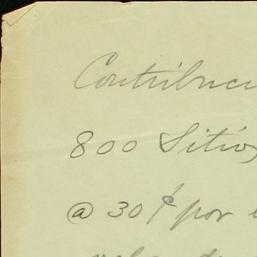 Contribuci
800 Sitios
@ 30 ¢ por